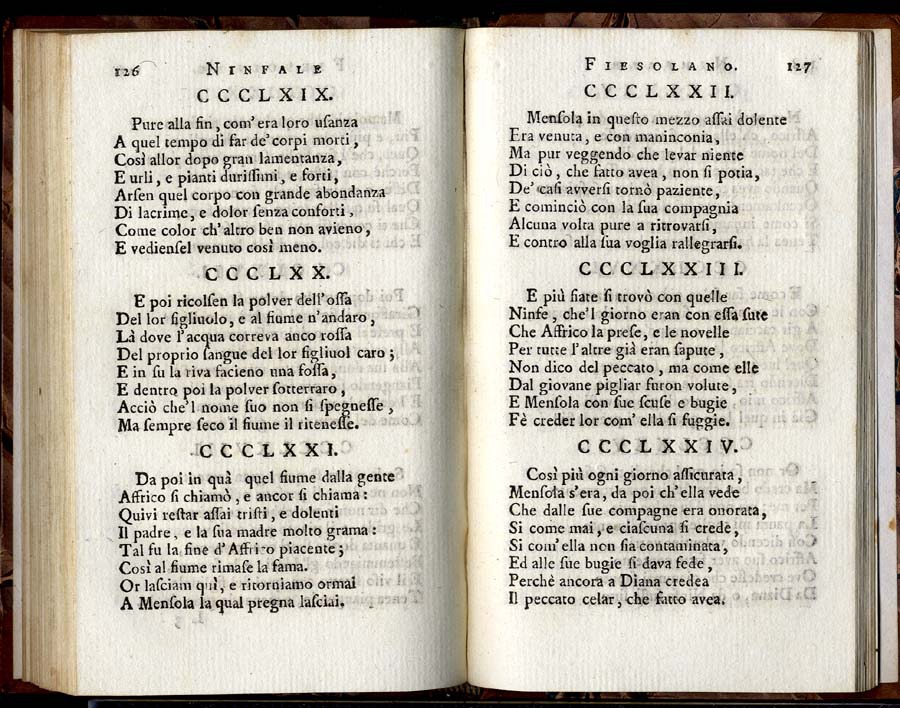 126 NINFALE
CCCLXIX.
Pure alla fin, com' era loro uſanza
A quel tempo di far de' corpi morti,
Così allor dopo gran lamentanza,
E urli, e pianti duriſſimi, e forti,
Arſen quel corpo con grande abondanza
Di lacrime, e dolor ſenza conforti,
Come color ch' altro ben non avieno,
E vedienſel venuto così meno.
CCCLXX.
E poi ricolſen la polver dell' oſſa
Del lor figliuolo, e al fiume n' andaro,
Là dove l' acqua correva anco roſſa
Del proprio ſangue del lor figliuol caro;
E in ſu la riva facieno una foſſa,
E dentro poi la polver ſotterraro,
Acciò che'l nome ſuo non ſi ſpegneſſe,
Ma ſempre ſeco il fiume il riteneſſe.
CCCLXXI.
Da poi in quà quel fiume dalla gente
Affrico ſi chiamò, e ancor ſi chiama:
Quivi reſtar aſſai triſti, e dolenti
Il padre, e la ſua madre molto grama:
Tal fu la fine d' Affrico piacente;
Così al fiume rimaſe la fama.
Or laſciam quì, e ritorniamo ormai
A Menſola la qual pregna laſciai.
FIESOLANO. 127
CCCLXXII.
Menſola in queſto mezzo aſſai dolente
Era venuta, e con maninconia,
Ma pur veggendo che levar niente
Di ciò, che fatto avea, non ſi potia,
De' caſi avverſi tornò paziente,
E cominciò con la ſua compagnia
Alcuna volta pure a ritrovarſi,
E contro alla ſua voglia rallegrarſi.
CCCLXXIII.
E più fiate ſi trovò con quelle
Ninfe, che'l giorno eran con eſſa ſute
Che Affrico la preſe, e le novelle
Per tutte l' altre già eran ſapute,
Non dico del peccato, ma come elle
Dal giovane pigliar furon volute,
E Menſola con ſue ſcuſe e bugie
Fè creder lor com' ella ſi fuggie.
CCCLXXIV.
Così più ogni giorno aſſicurata,
Menſola s' era, da poi ch' ella vede
Che dalle ſue compagne era onorata,
Si come mai, e ciaſcuna ſi crede,
Si com' ella non ſia contaminata,
Ed alle ſue bugie ſi dava fede,
Perchè ancora a Diana credea
Il peccato celar, che fatto avea.